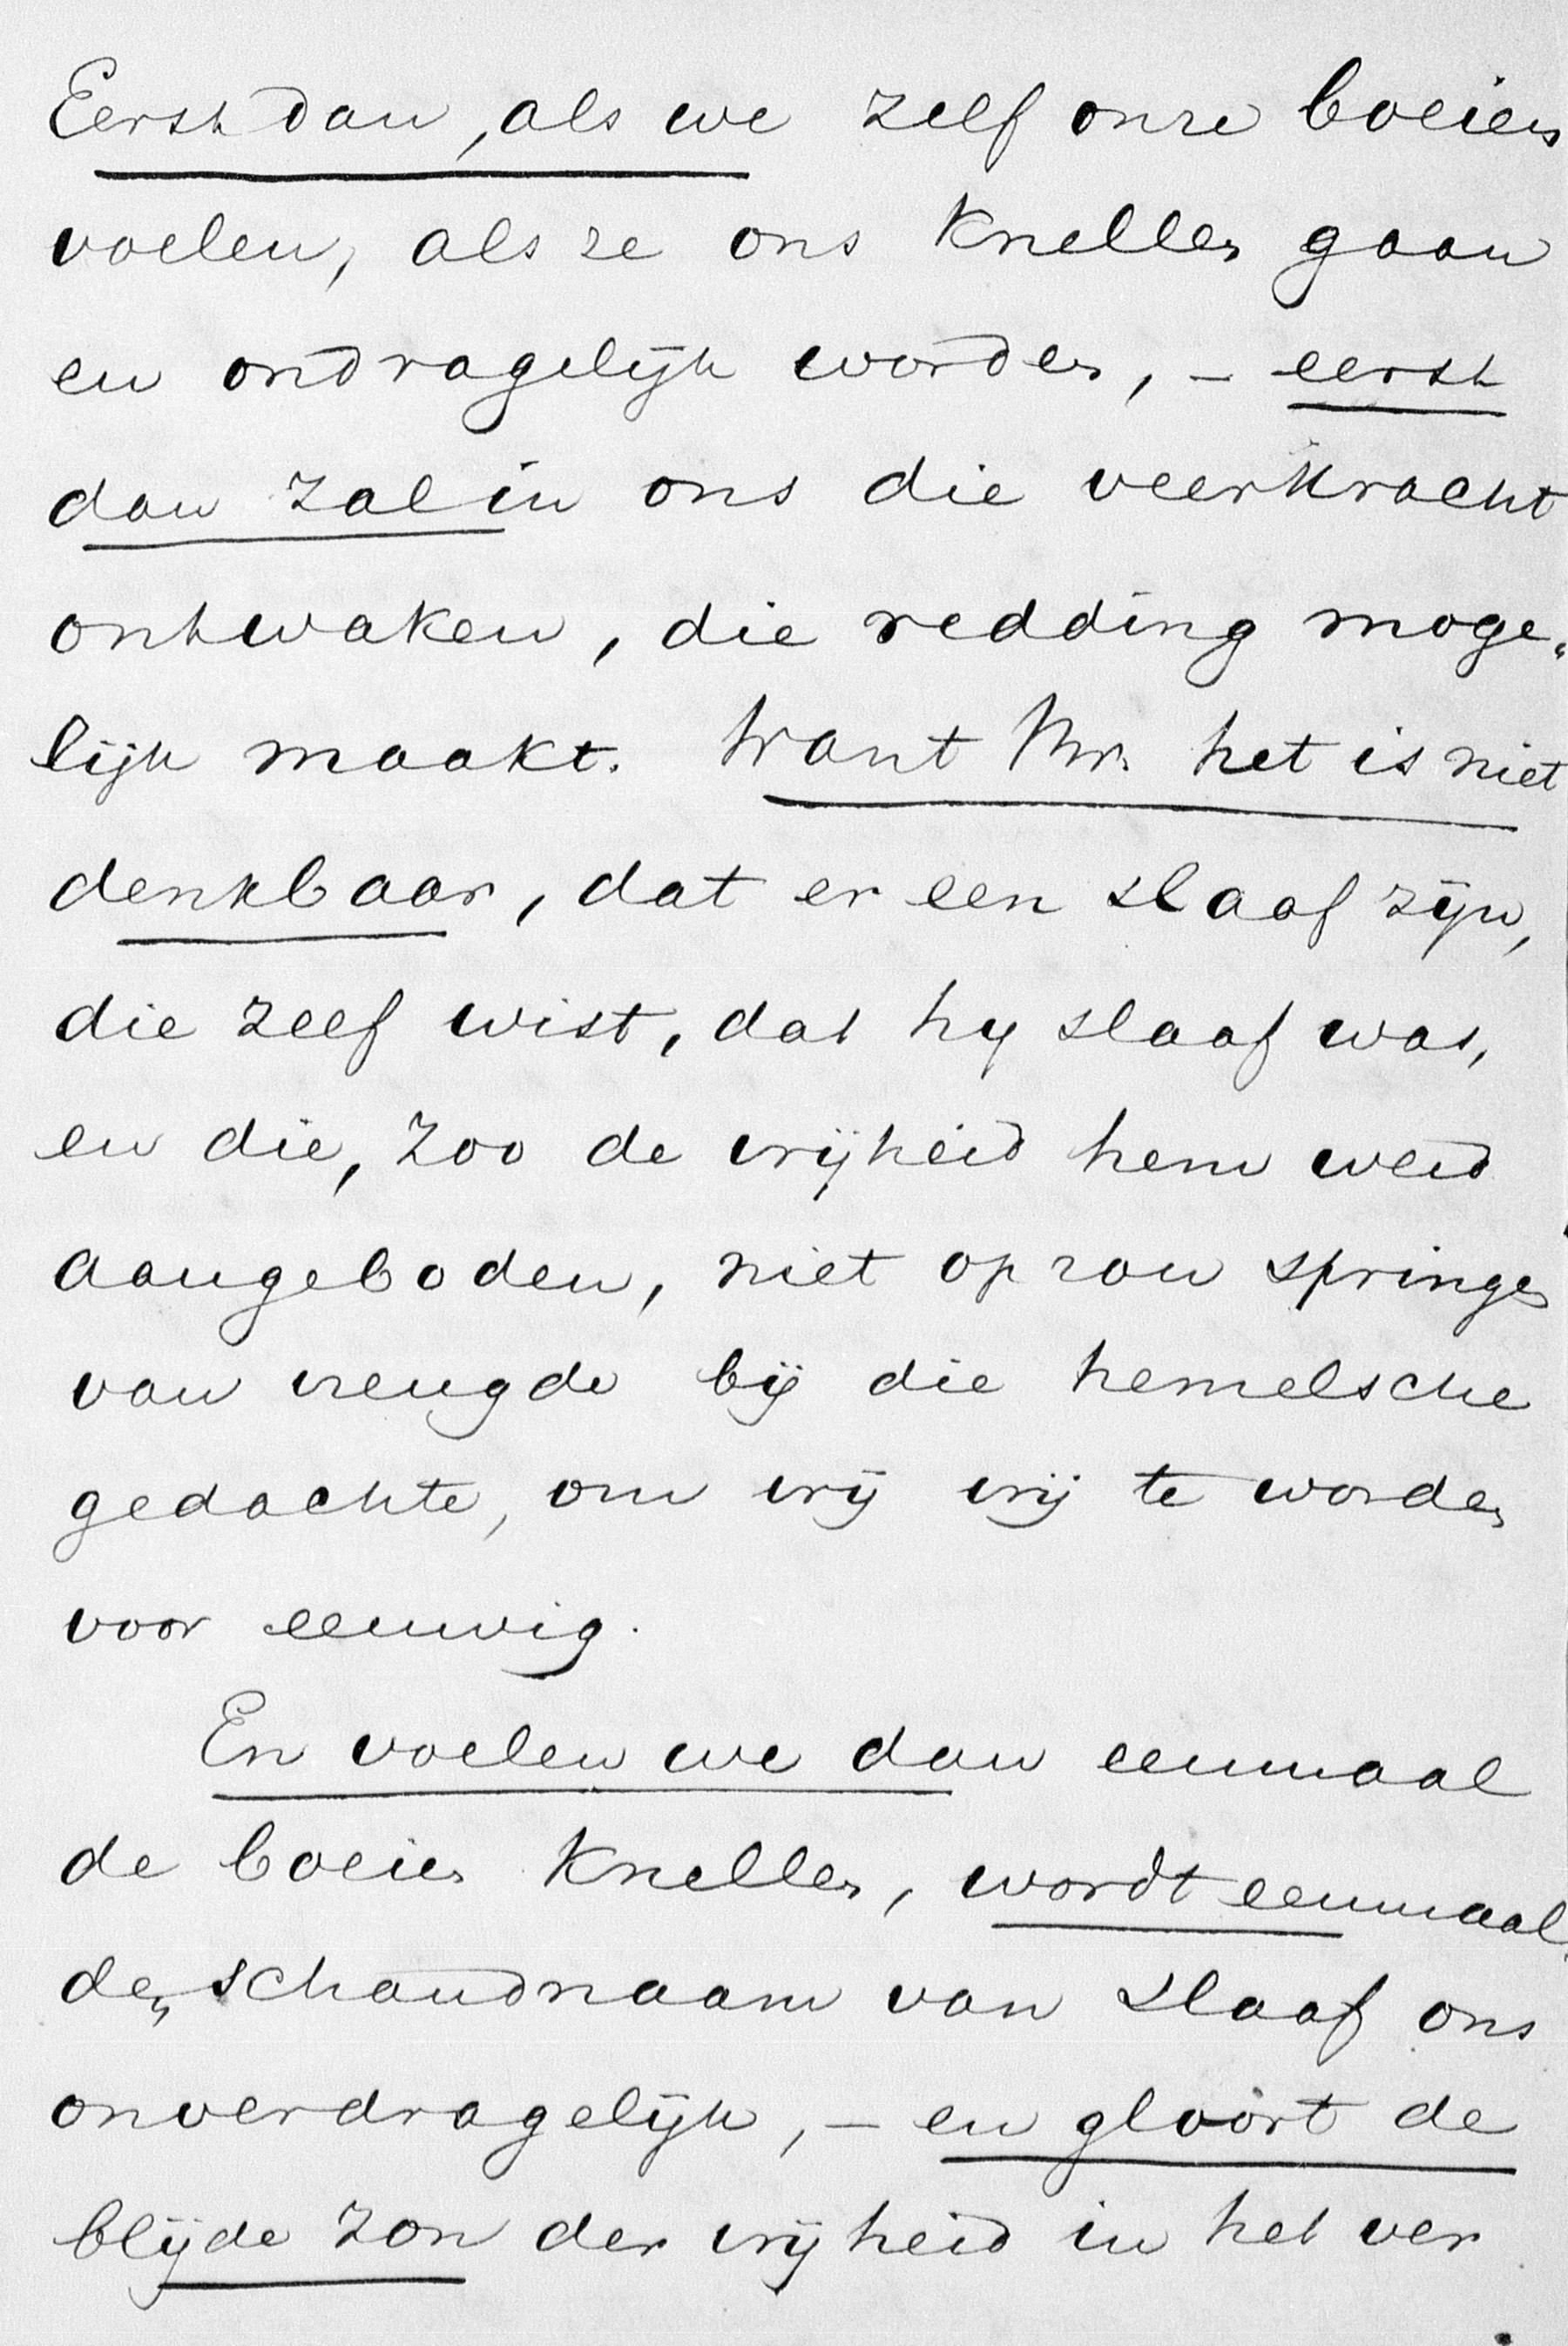 Eerst dan, als we zelf onze boeien
voelen, als ze ons knellen gaan
en ondragelijk worden, - eerst
dan zal in ons die veerkracht
ontwaken, die redding moge-
lijk maakt. Want Mr. het is niet
denkbaar, dat er een slaaf zijn,
die zelf wist, dat hy slaaf was,
en die, zoo de vrijheid hem werd
aangeboden, niet op zou springen
van vreugde bij die hemelsche
gedachte, om vrij vrij te worden
voor eeuwig.
En voelen we dan eenmaal
de boeien knellen, wordt eenmaal
den schandnaam van slaaf ons
onverdragelijk, - en gloort de
blijde zon der vrijheid in het ver